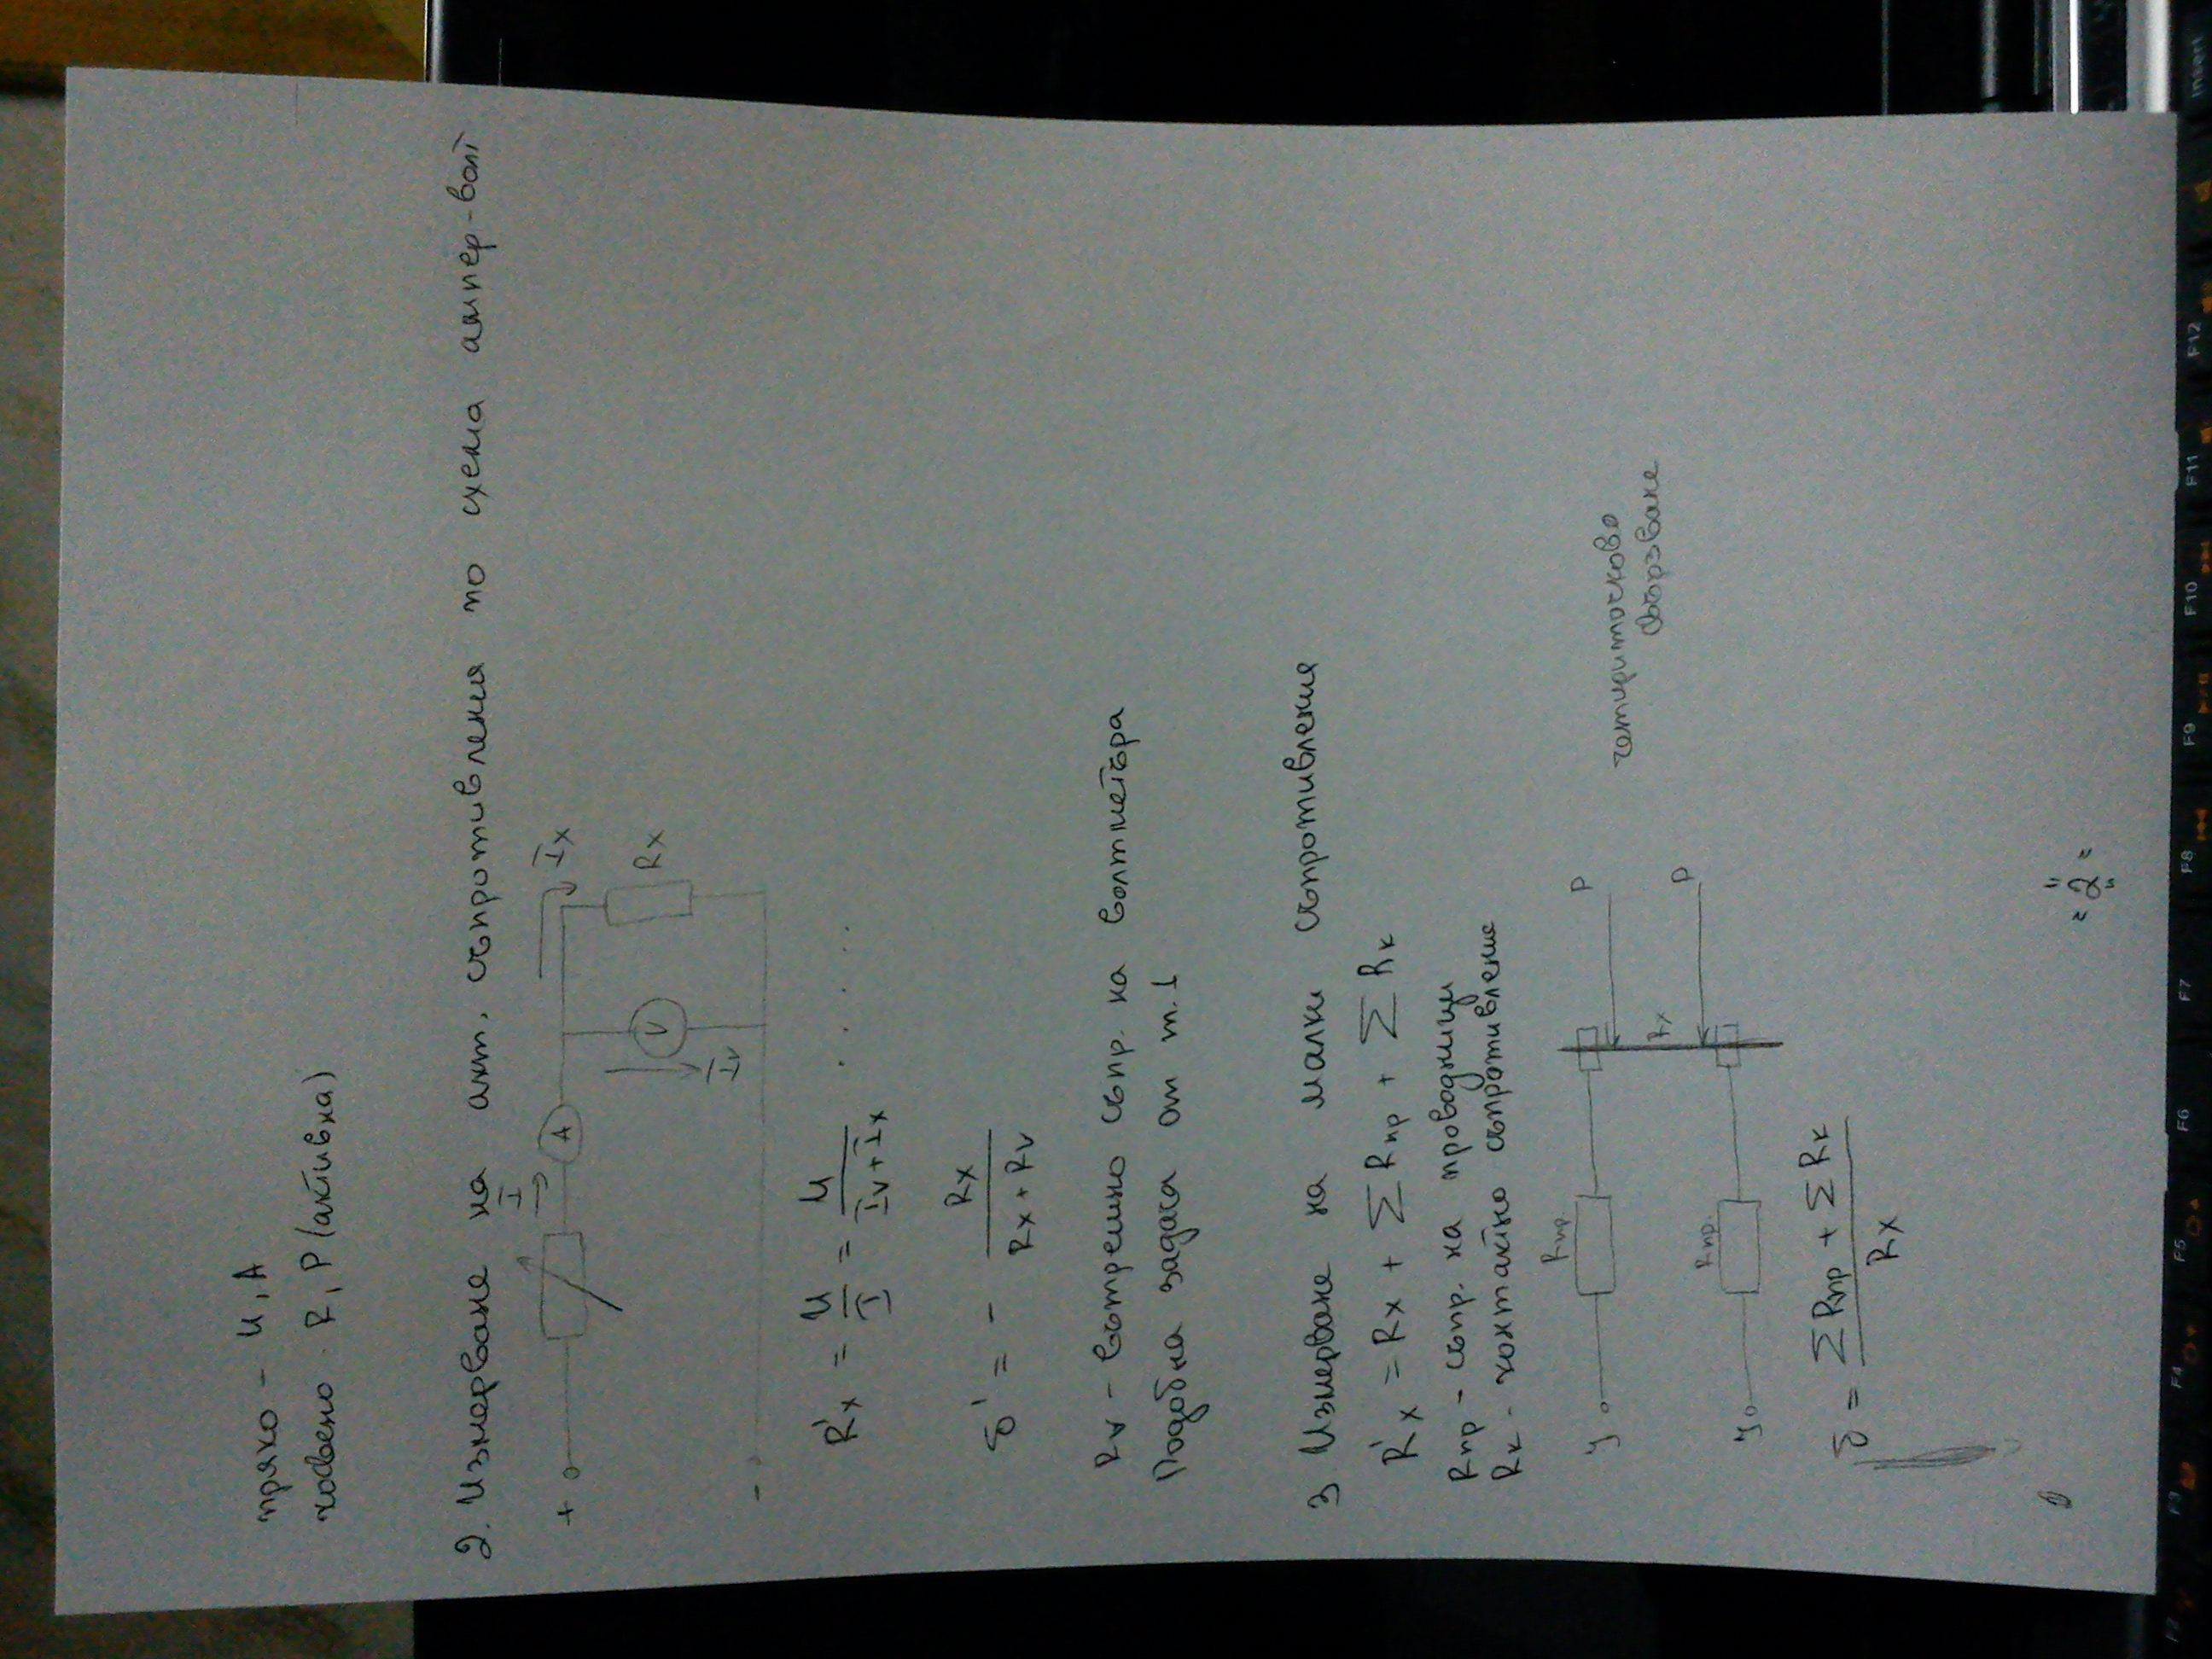 пряко - U, A
косвено . R, P (активна)
2. Измерване на акт. съпротивления по схема ампер-волт
I
Ix
+
A
V
Rx
Iv
-
R'x = U/I = U/(Iv + Ix) . . . . .
δ' = - Rx/(Rx + Rv)
Rv - вътрешно съпр. на волтметъра
Подобна задача от т. 1
3. Измерване на малки съпротивления
R'x = Rx + ∑Rпр + ∑Rк
Rпр - съпр. на проводници
Rк - контактно съпротивление
Rпр
P
четириточково
свързване
Rx
Rпр.
P
δ = (∑Rпр + ∑Rк)/Rx
= "2" =